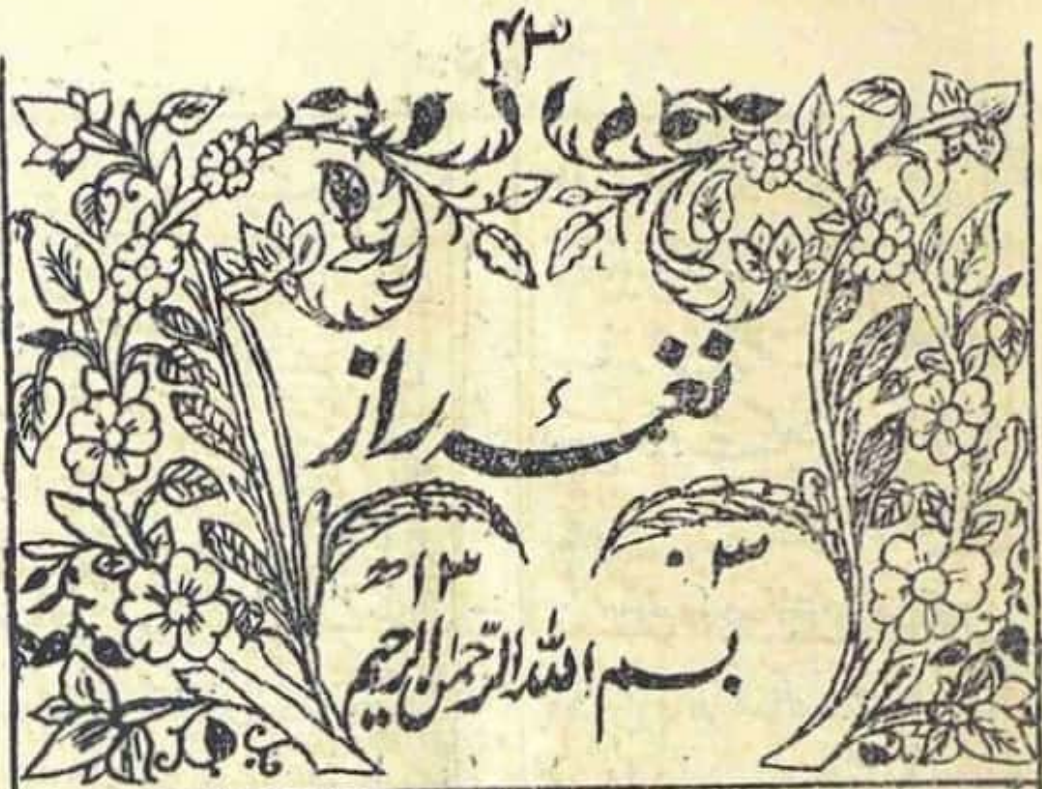 نغمۂ راز
بسم الله الرّحمٰن الرحيم